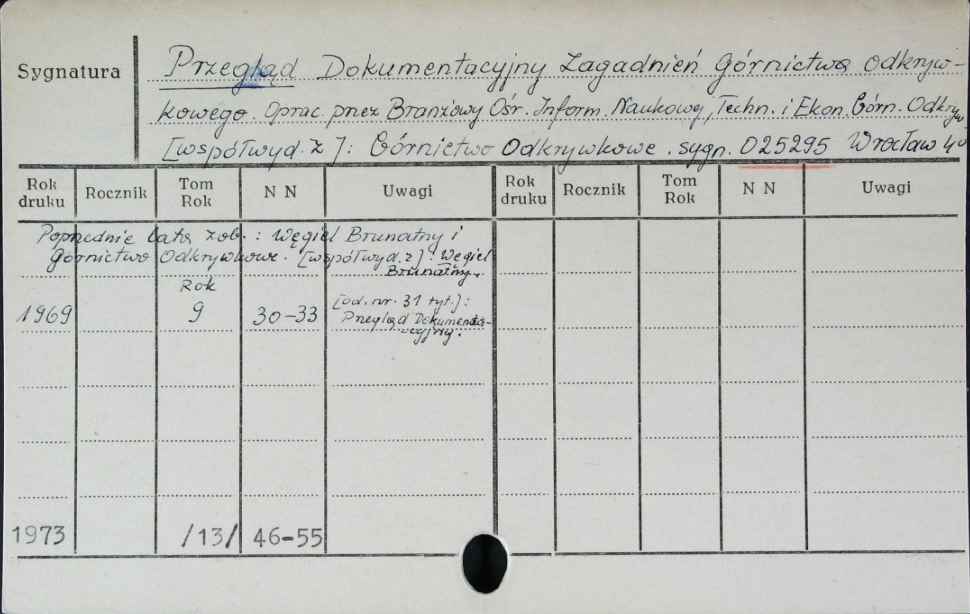 Sygnatura
Przegląd Dokumentacyjny Zagadnień Górnictwa Odkryw-
kowego. Oprac. przez Branżowy Ośr. Inform. Naukowej, Techn. i Ekon. Górn. Odkryw
[współwyd. z]: Górnictwo Odkrywkowe. sygn. 025295 Wrocław 4°
Rok druku Rocznik Tom Rok N N Uwagi Rok druku Rocznik Tom Rok N N Uwagi
Poprzednie lata zob.: Węgiel Brunatny i
Górnictwo Odkrywkowe. [współwyd. z]: Węgiel
Brunatny.
Rok
1969 9 30-33 [od. nr. 31 tyt.]:
Przegląd Dokumenta-
cyjny.
1973 /13/ 46-55